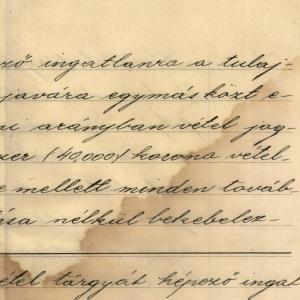 ző ingatlanra a tulaj-
javára egymás közt e-
i arányban vétel jog-
zer (40,000) korona vétel-
e mellett minden továb-
ása nélkül bekebelez-
étel tárgyát képező ingat